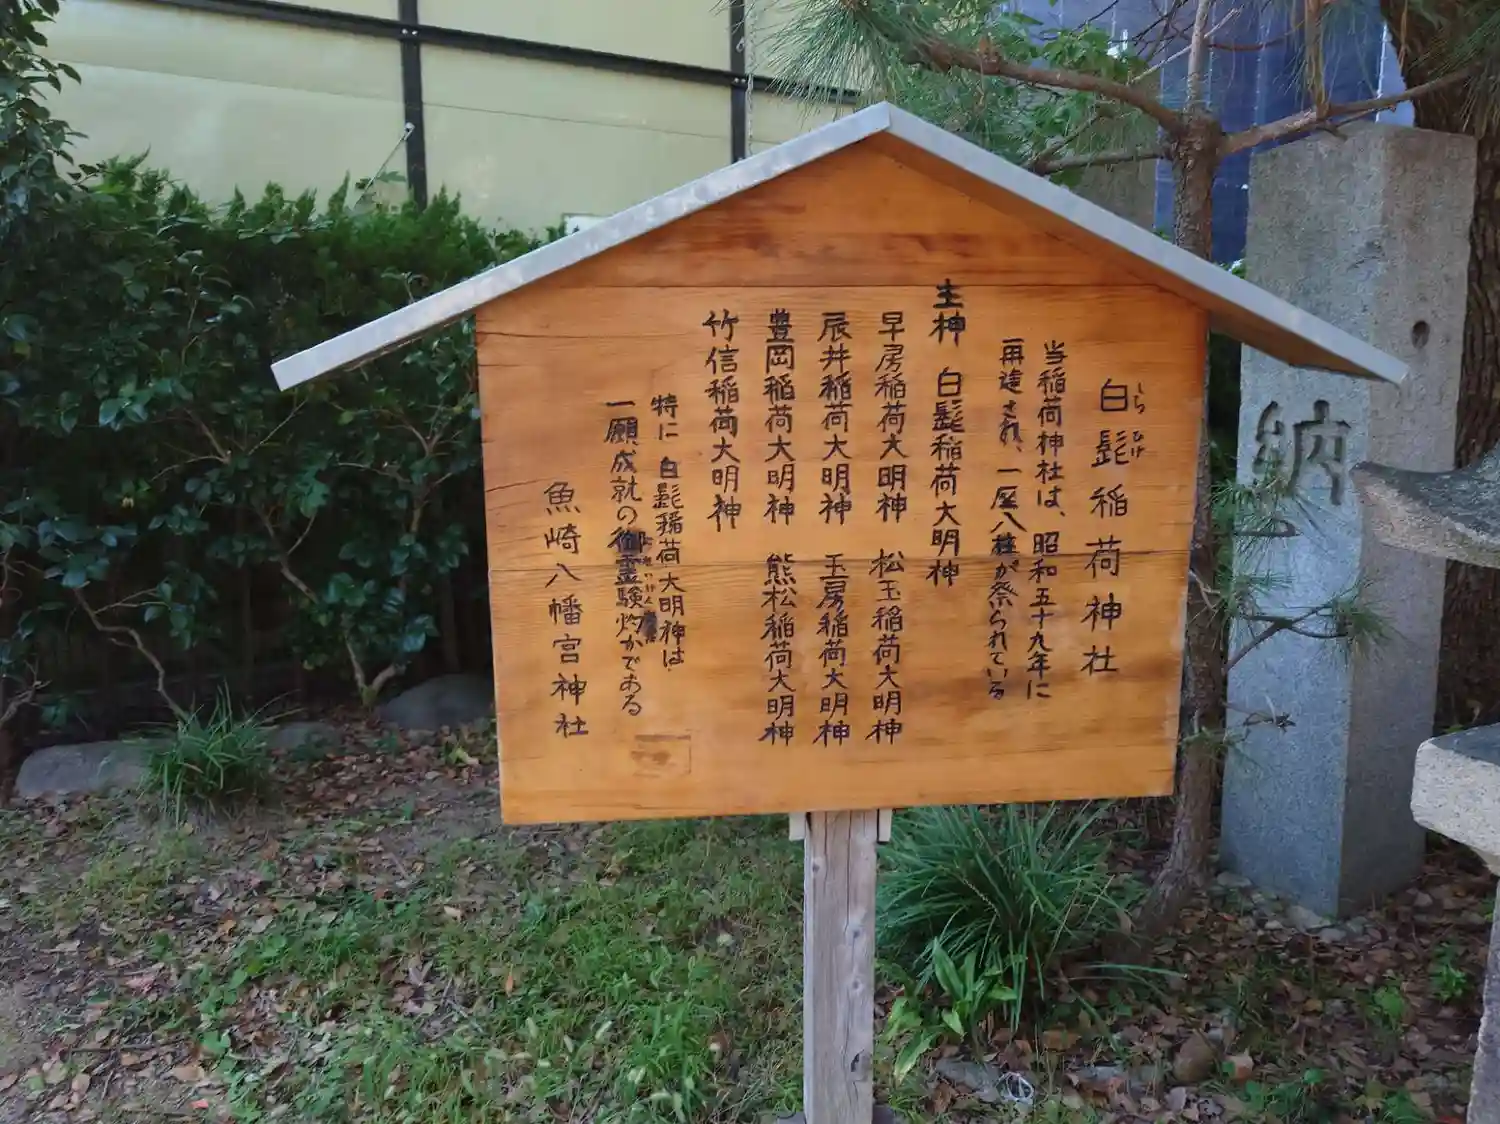 白髭稲荷神社
しらひげ
当稲荷神社は、昭和五十九年に
再建され、一座八柱が祭られている
主神 白髭稲荷大明神
早房稲荷大明神 松玉稲荷大明神
辰井稲荷大明神 玉房稲荷大明神
豊岡稲荷大明神 熊松稲荷大明神
竹信稲荷大明神
特に白髭稲荷大明神は
一願成就の御霊験灼かである
魚崎八幡宮神社
納